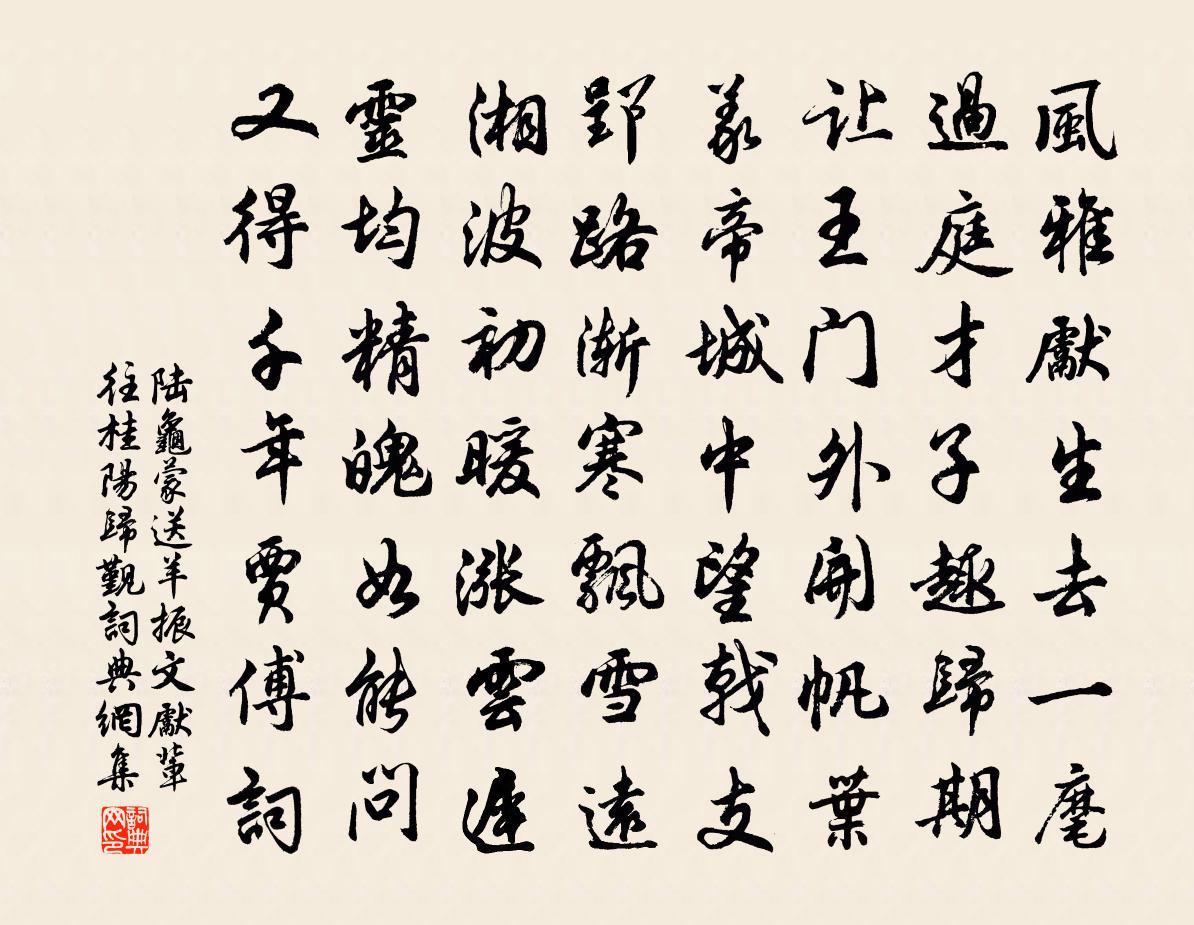 風雅獻生去一麾
過庭才子趣歸期
让王门外開帆葉
義帝城中望戟支
郢路漸寒飄雪遠
湘波初暖漲雲遲
靈均精魄如能問
又得千年賈傅詞
陆龜蒙送羊振文獻輩
往桂陽歸覲詞典網集
詞典网印